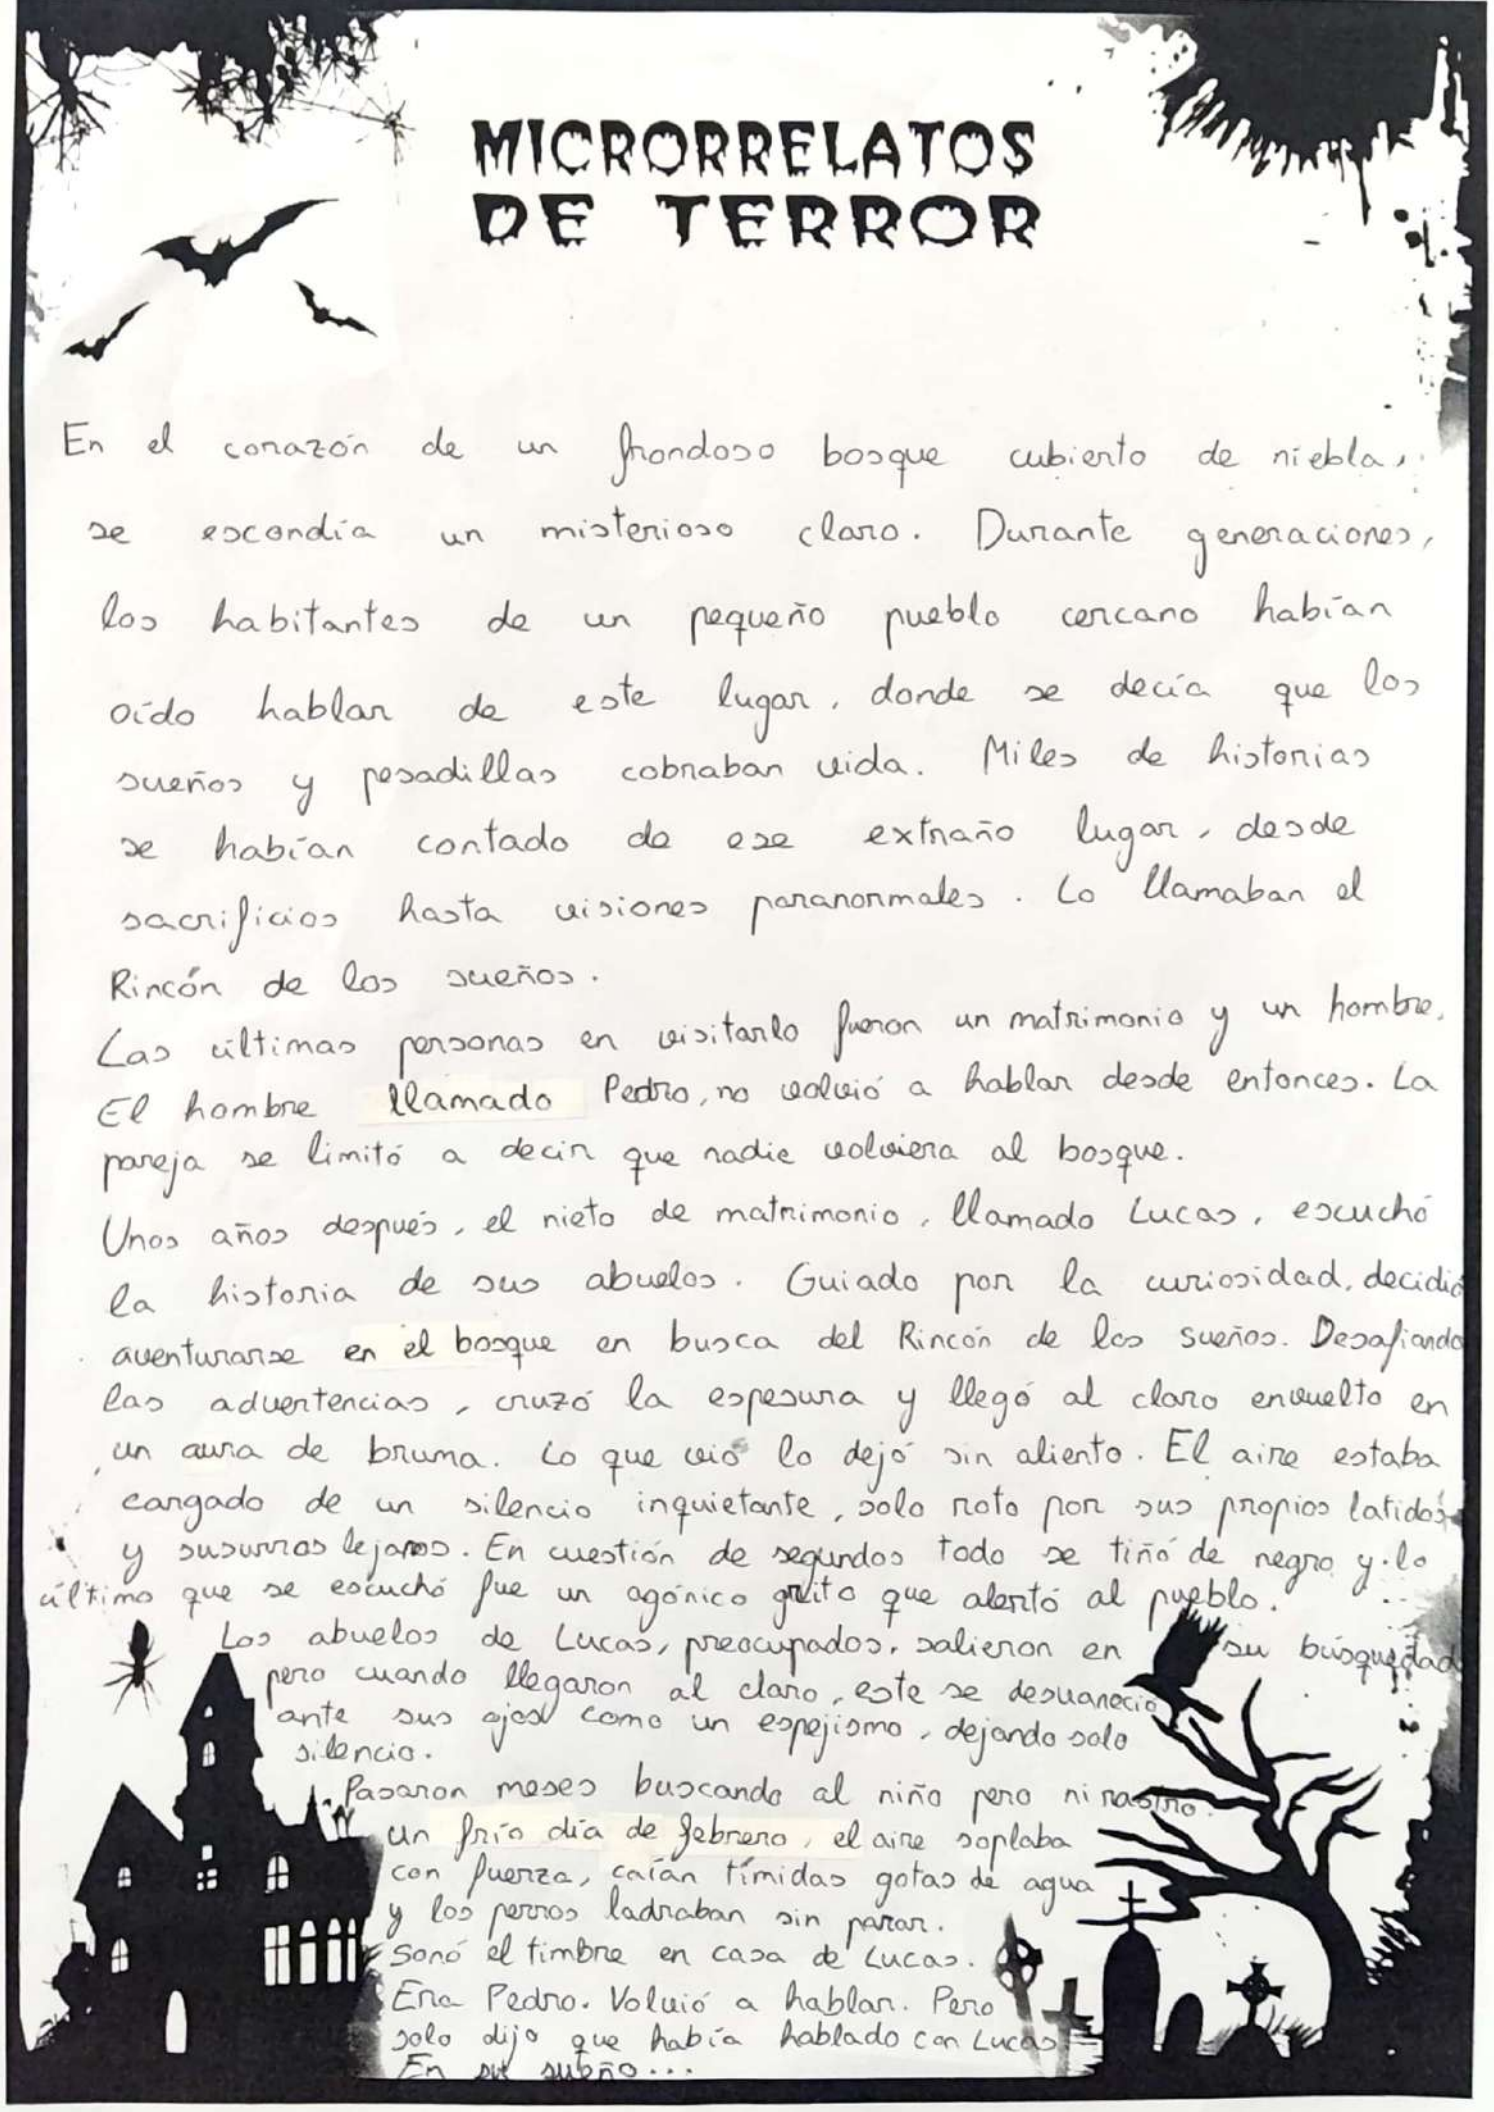 MICRORRELATOS
DE TERROR
En el corazón de un frondoso bosque cubierto de niebla,
se escondía un misterioso claro. Durante generaciones,
los habitantes de un pequeño pueblo cercano habían
oído hablar de este lugar, donde se decía que los
sueños y pesadillas cobraban vida. Miles de historias
se habían contado de ese extraño lugar, desde
sacrificios hasta visiones paranormales. Lo llamaban el
Rincón de los sueños.
Las últimas personas en visitarlo fueron un matrimonio y un hombre.
El hombre llamado Pedro, no volvió a hablar desde entonces. La
pareja se limitó a decir que nadie volviera al bosque.
Unos años después, el nieto de matrimonio, llamado Lucas, escuchó
la historia de sus abuelos. Guiado por la curiosidad, decidió
aventurarse en el bosque en busca del Rincón de los sueños. Desafiando
las advertencias, cruzó la espesura y llegó al claro envuelto en
un aura de bruma. Lo que vió lo dejó sin aliento. El aire estaba
cargado de un silencio inquietante, solo roto por sus propios latidos
y susurros lejanos. En cuestión de segundos todo se tiñó de negro y lo
último que se escuchó fue un agónico grito que alertó al pueblo.
Los abuelos de Lucas, preocupados, salieron en su búsquedad
pero cuando llegaron al claro, este se desvaneció
ante sus ojos como un espejismo, dejando solo
silencio.
Pasaron meses buscando al niño pero ni rastro.
Un frío día de febrero, el aire soplaba
con fuerza, caían tímidas gotas de agua
y los perros ladraban sin parar.
Sonó el timbre en casa de Lucas.
Era Pedro. Volvió a hablar. Pero
solo dijo que había hablado con Lucas.
En su sueño...